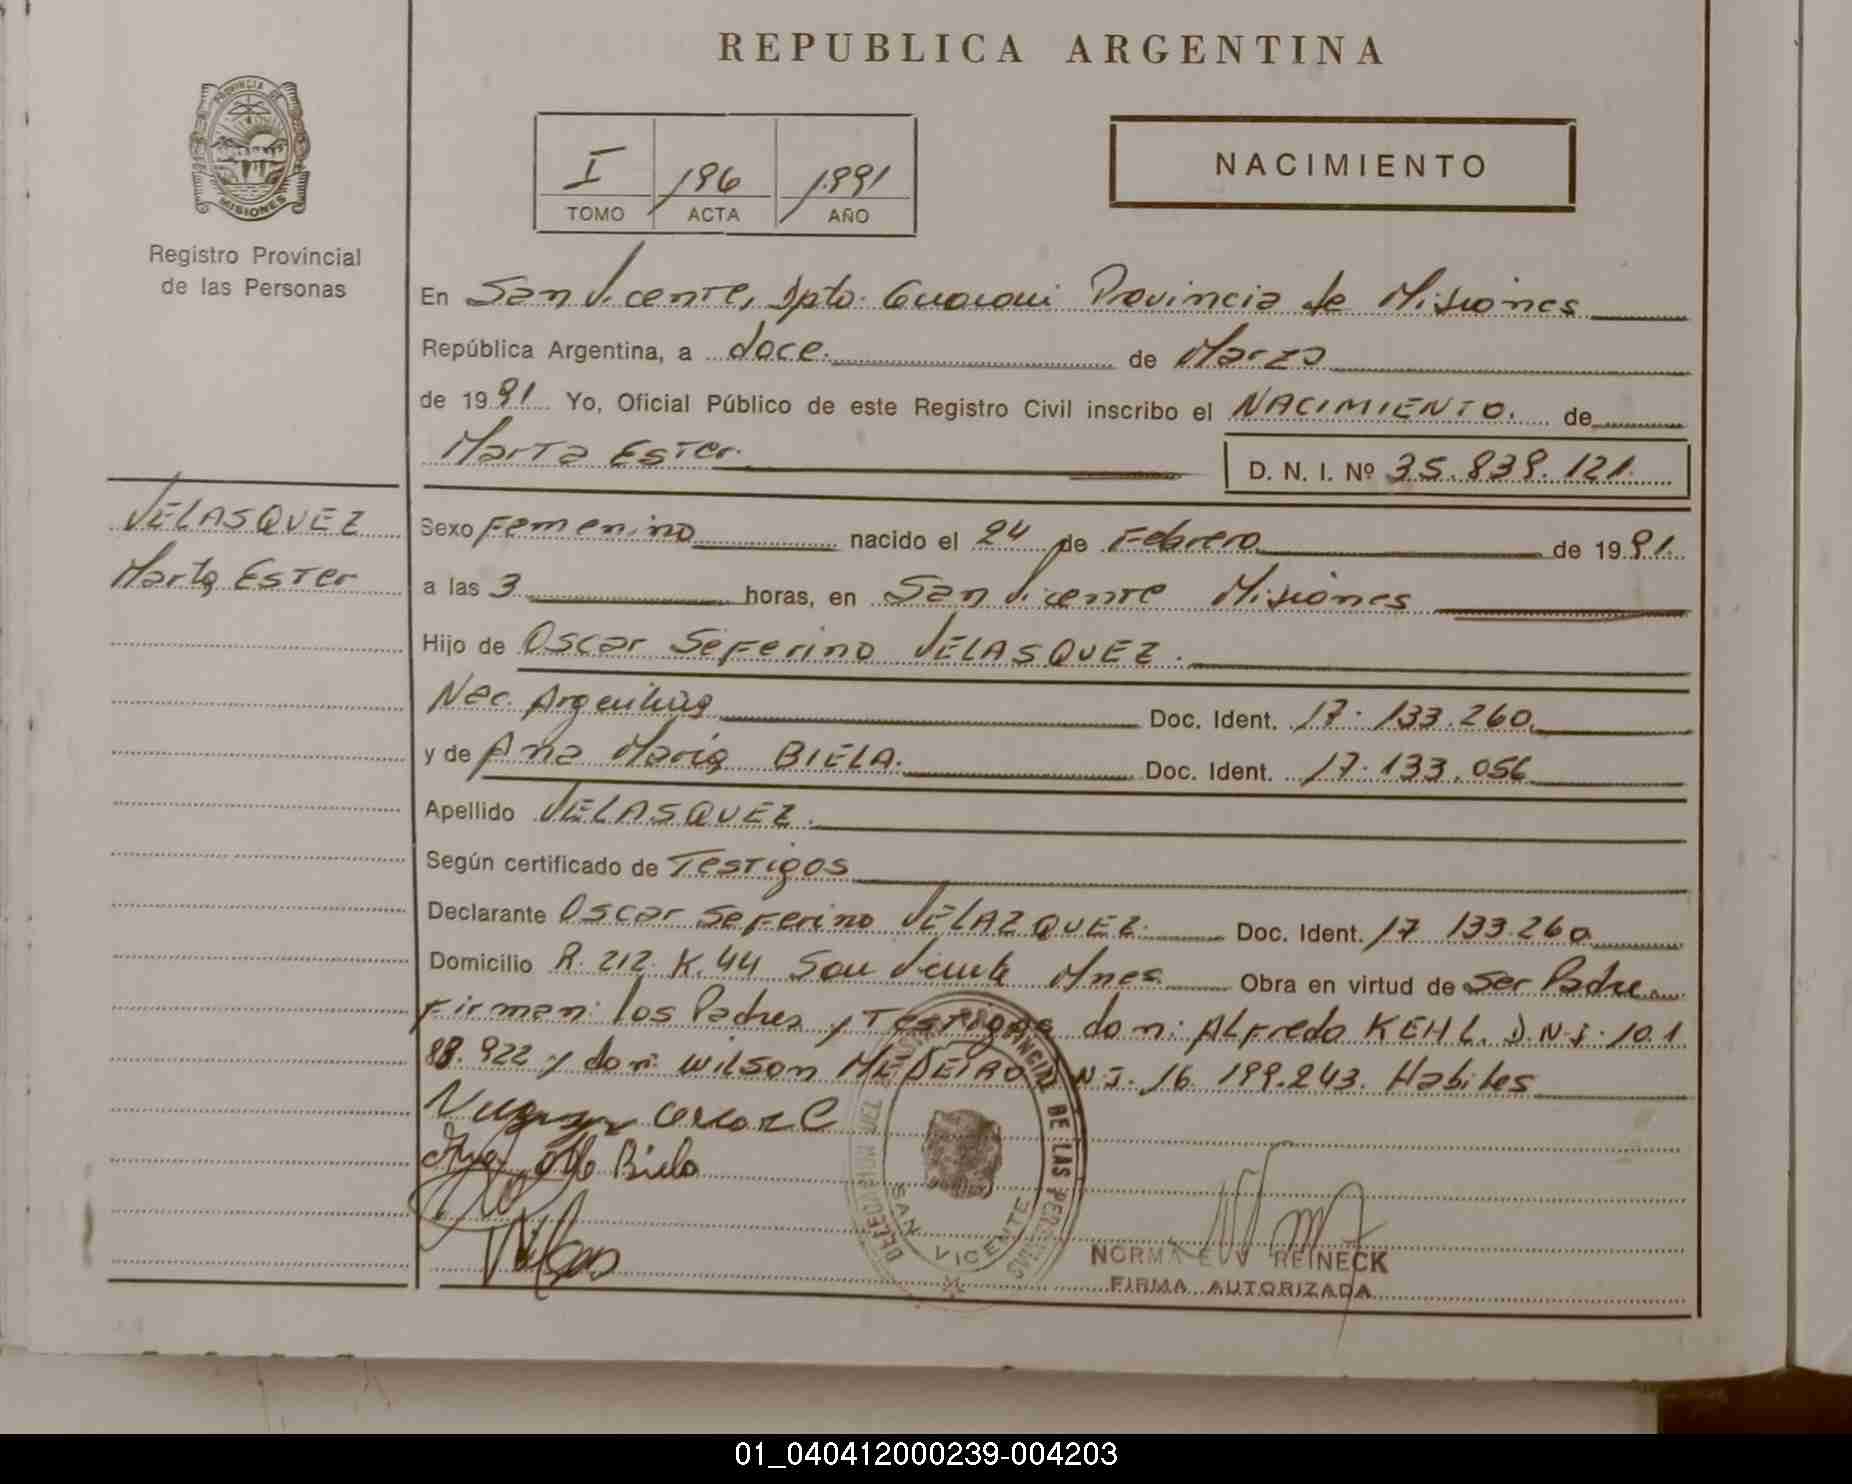 REPUBLICA ARGENTINA
PROVINCIA DE
MISIONES
Registro Provincial
de las Personas
I 196 1991
TOMO ACTA AÑO
NACIMIENTO
En San Vicente, Dpto. Guarani Provincia de Misiones
República Argentina, a doce. de Marzo
de 1991 Yo, Oficial Público de este Registro Civil inscribo el NACIMIENTO. de
Marta Ester. D. N. I. Nº 35.839.121.
VELASQUEZ
Marta Ester
Sexo Femenino nacido el 24 de Febrero de 1991.
a las 3 horas, en San Vicente Misiones
Hijo de Oscar Seferino VELASQUEZ.
Nac. Argentina Doc. Ident. 17.133.260.
y de Ana Maria BIELA. Doc. Ident. 17.133.056
Apellido VELASQUEZ.
Según certificado de Testigos
Declarante Oscar Seferino VELAZQUEZ. Doc. Ident. 17 133.260
Domicilio R. 212 K. 44 San Vicente Mnes. Obra en virtud de Ser Padre.
Firman: los Padres y Testigos don: Alfredo KEHL. D.N.I. 10.1
88.922 y don: Wilson MEDEIRO N.I. 16.199.243. Habiles
Biela
DE LAS PERSONAS
SAN VICENTE
NORMA E REINECK
FIRMA AUTORIZADA
01_040412000239-004203